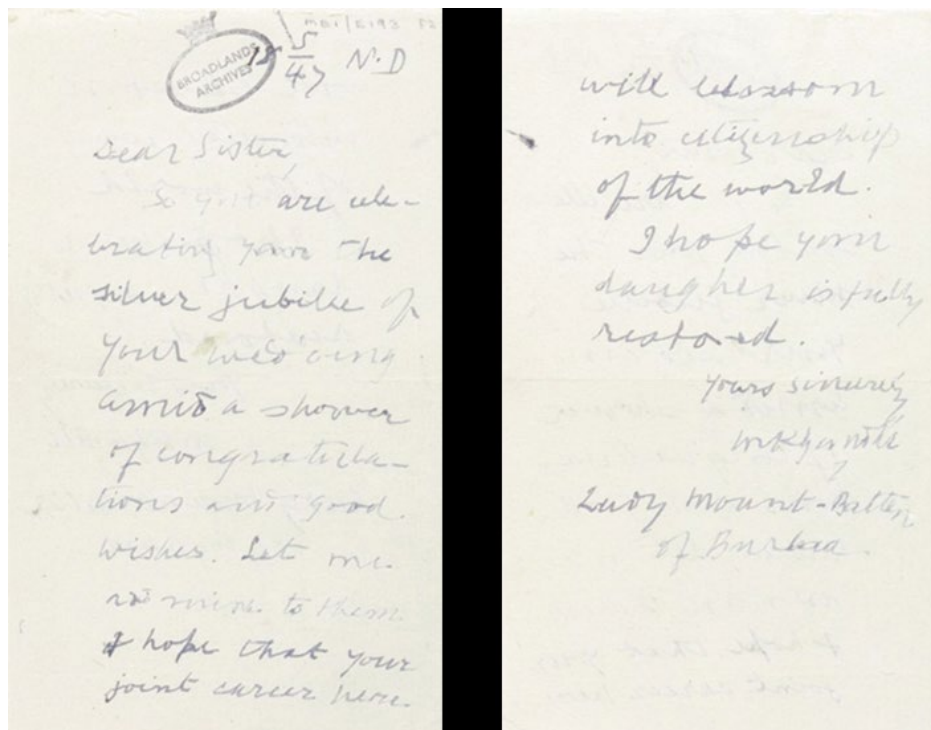 BROADLANDS
ARCHIVES
18/5/47 N.D
Dear Sister,
So you are cele-
brating your the
silver jubilee of
your wedding
amid a shower
of congratula-
tions and good
wishes. Let me
add mine to them.
I hope that your
joint career here
will blossom
into citizenship
of the world.
I hope your
daughter is fully
restored.
Yours sincerely
MKGandhi
Lady Mount-Batten
of Burma.